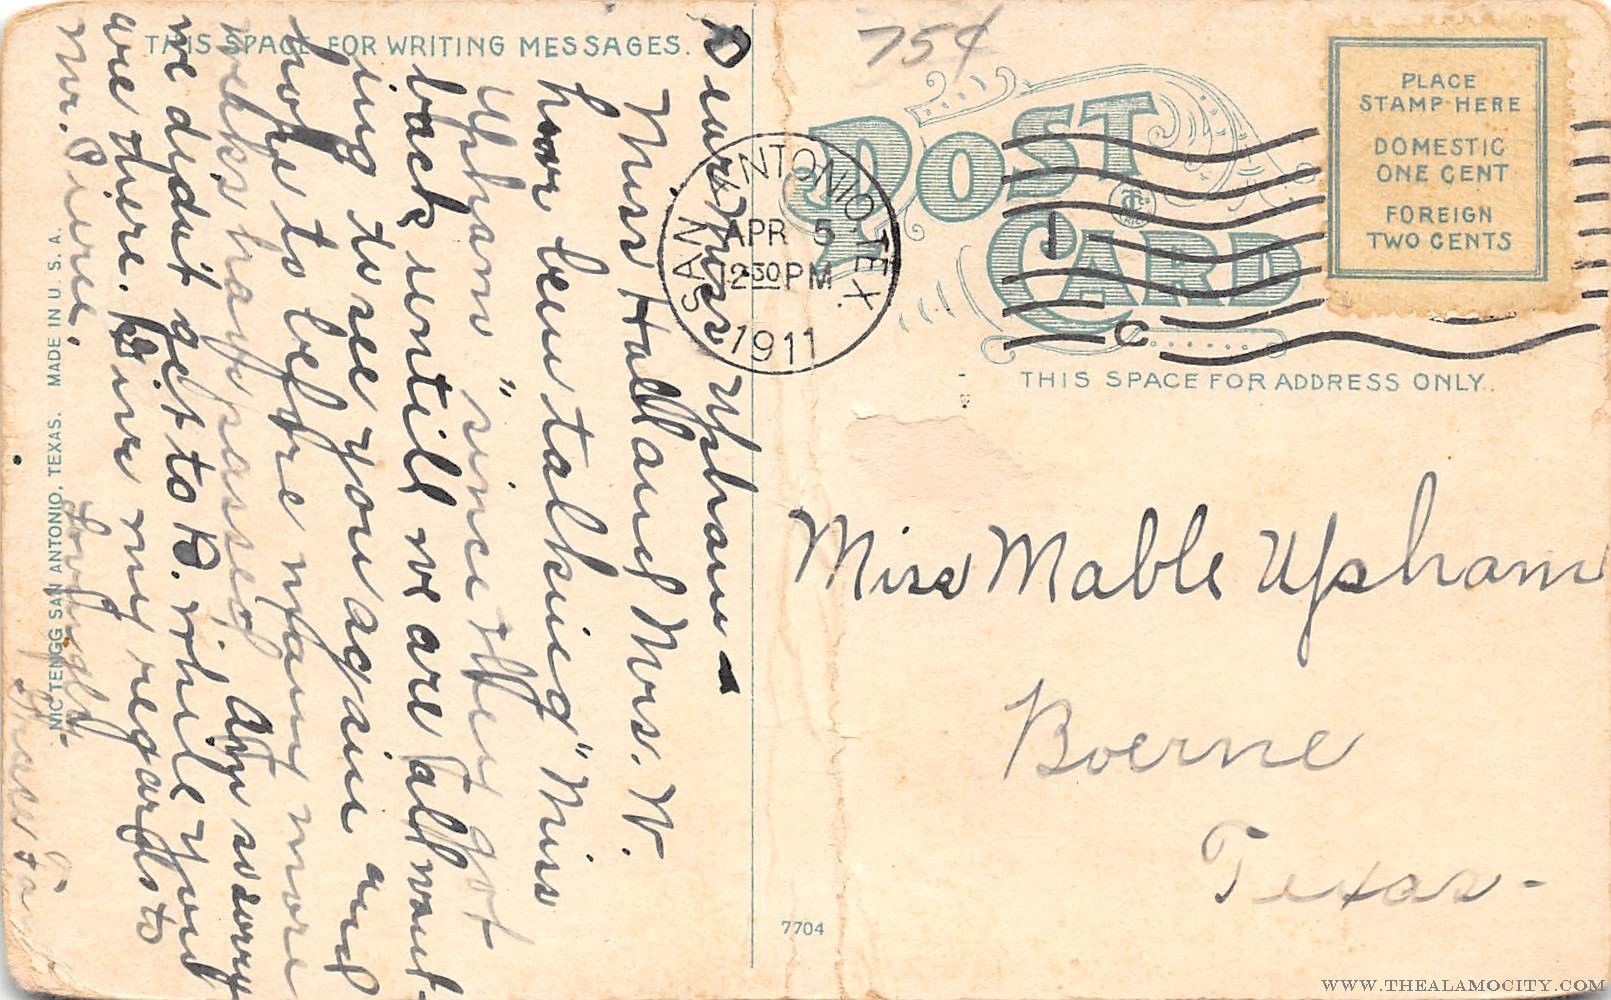 THIS SPACE FOR WRITING MESSAGES.
Dear Miss Upham -
Miss Hall and Mrs. W.
have been talking "Miss
Upham" since they got
back untill we are all want-
ing to see you again and
hope to before many more
weeks have passed. Am sorry
we didn't get to B. while you
are there. Give my regards to
Mr. Pierce.
Lovingly
NIC TENGG SAN ANTONIO, TEXAS. MADE IN U. S. A.
75¢
POST CARD
SAN ANTONIO, TEX.
APR 5
12 30 PM
1911
1
C
PLACE
STAMP HERE
DOMESTIC
ONE CENT
FOREIGN
TWO CENTS
THIS SPACE FOR ADDRESS ONLY.
Miss Mable Upham
Boerne
Texas-
7704
WWW.THEALAMOCITY.COM